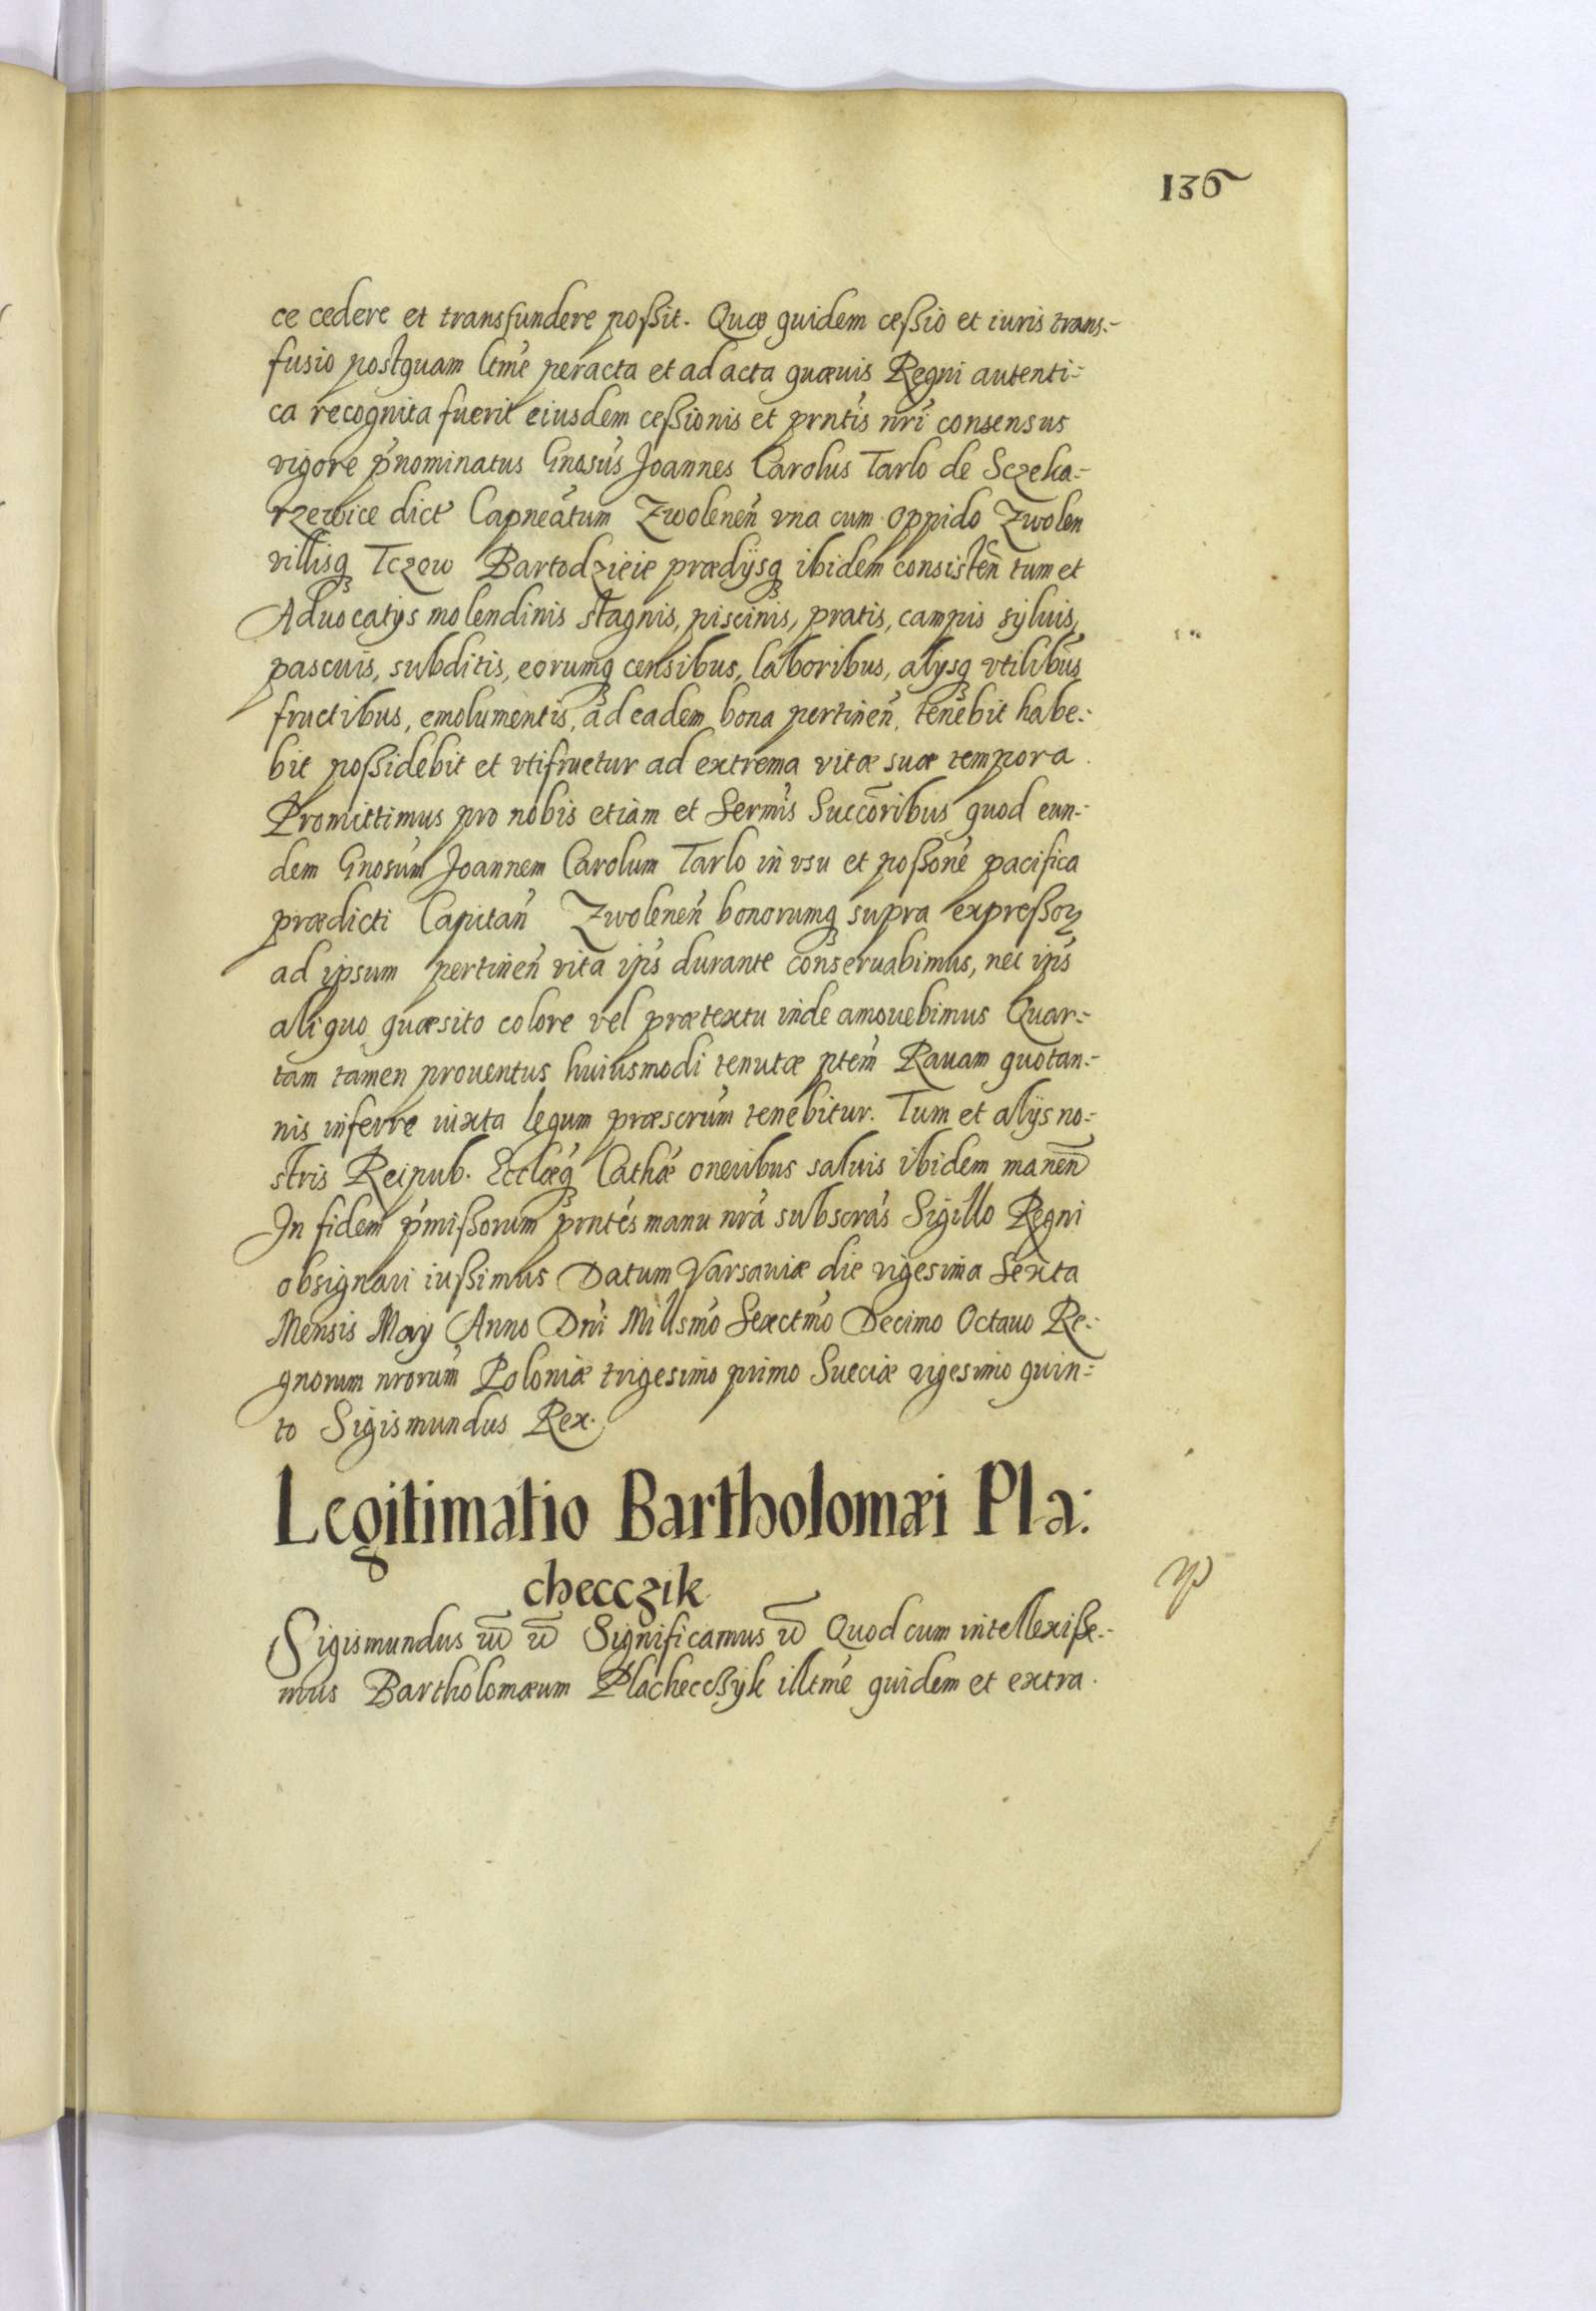 136
ce cedere et transfundere poßit. Quæ quidem ceßio et iuris trans-
fusio postquam ltme peracta et ad acta quæuis Regni autenti-
ca recognita fuerit eiusdem ceßionis et prntis nri consensus
vigore pnominatus Gnosus Joannes Carolus Tarlo de Sczeka-
rzewice dict Capneatum Zwolenen vna cum oppido Zwolen
villisq Tczow Bartodzieie prædijsq ibidem consisten tum et
Aduocatijs molendinis stagnis, piscinis, pratis, campis syluis,
pascuis, subditis, eorumq censibus, laboribus, alijsq vtilibus
fructibus, emolumentis, ad eadem bona pertinen, tenebit habe-
bit poßidebit et vtifruetur ad extrema vitæ suæ tempora.
Promittimus pro nobis etiam et Sermis Succoribus quod eun-
dem Gnosum Joannem Carolum Tarlo in vsu et poßone pacifica
prædicti Capitan Zwolenen bonorumq supra expreßoꝝ
ad ipsum pertinen vita ips durante conseruabimus, nec ips
aliquo quæsito colore vel prætextu inde amouebimus Quar-
tam tamen prouentus huiusmodi tenutæ ptem Rauam quotan-
nis inferre iuxta legum præscrum tenebitur. Tum et alijs no-
stris Reipub. Ecclæq Cathæ oneribus saluis ibidem manen
In fidem pmißorum prntes manu nra subscras Sigillo Regni
obsignari iußimus Datum Varsauiæ die vigesima Sexta
Mensis Maij Anno Dni Millsmo Sexctmo Decimo Octauo Re-
gnorum nrorum Poloniæ trigesimo primo Sueciæ vigesimo quin-
to Sigismundus Rex.
Legitimatio Bartholomæi Pla:
checczik
Sigismundus Significamus Quod cum intellexiße-
mus Bartholomæum Placheccżyk illtme quidem et extra